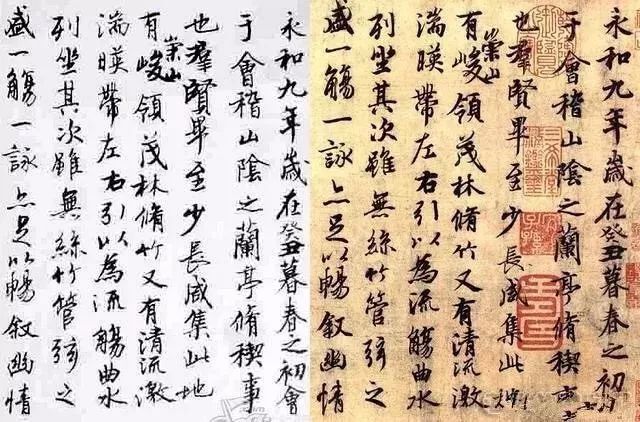 永和九年歲在癸丑暮春之初會
于會稽山陰之蘭亭脩稧事
也羣賢畢至少長咸集此地
有崇山峻領茂林脩竹又有清流激
湍暎帶左右引以為流觴曲水
列坐其次雖無絲竹管弦之
盛一觴一詠亦足以暢叙幽情
永和九年歲在癸丑暮春之初
于會稽山陰之蘭亭脩稧事
也羣賢畢至少長咸集此地
有崇山峻領茂林脩竹又有清流激
湍暎帶左右引以為流觴曲水
列坐其次雖無絲竹管弦之
盛一觴一詠亦足以暢叙幽情